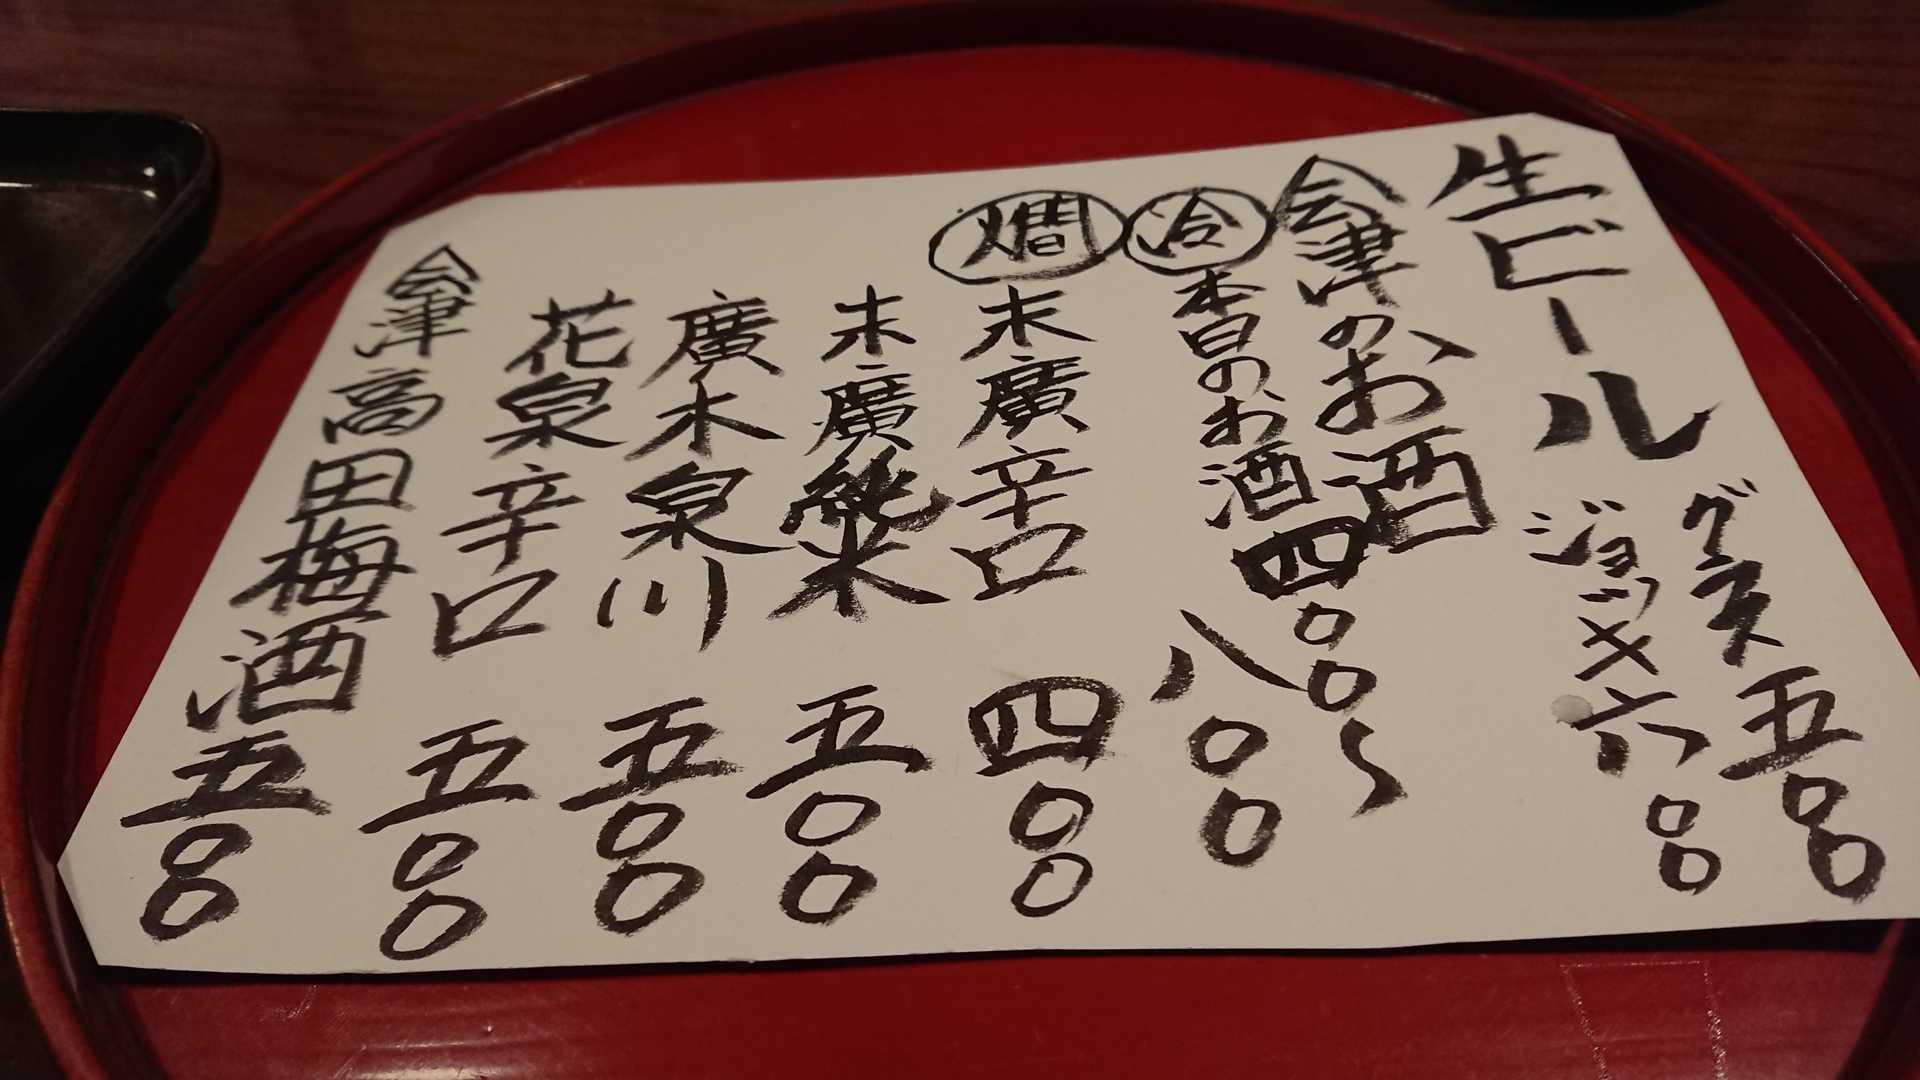 生ビール
グラス 五〇〇
ジョッキ 六〇〇
会津のお酒
四〇〇〜
冷 本日のお酒 八〇〇
燗 末廣辛口 四〇〇
末廣純米 五〇〇
廣木泉川 五〇〇
花泉辛口 五〇〇
会津高田梅酒 五〇〇